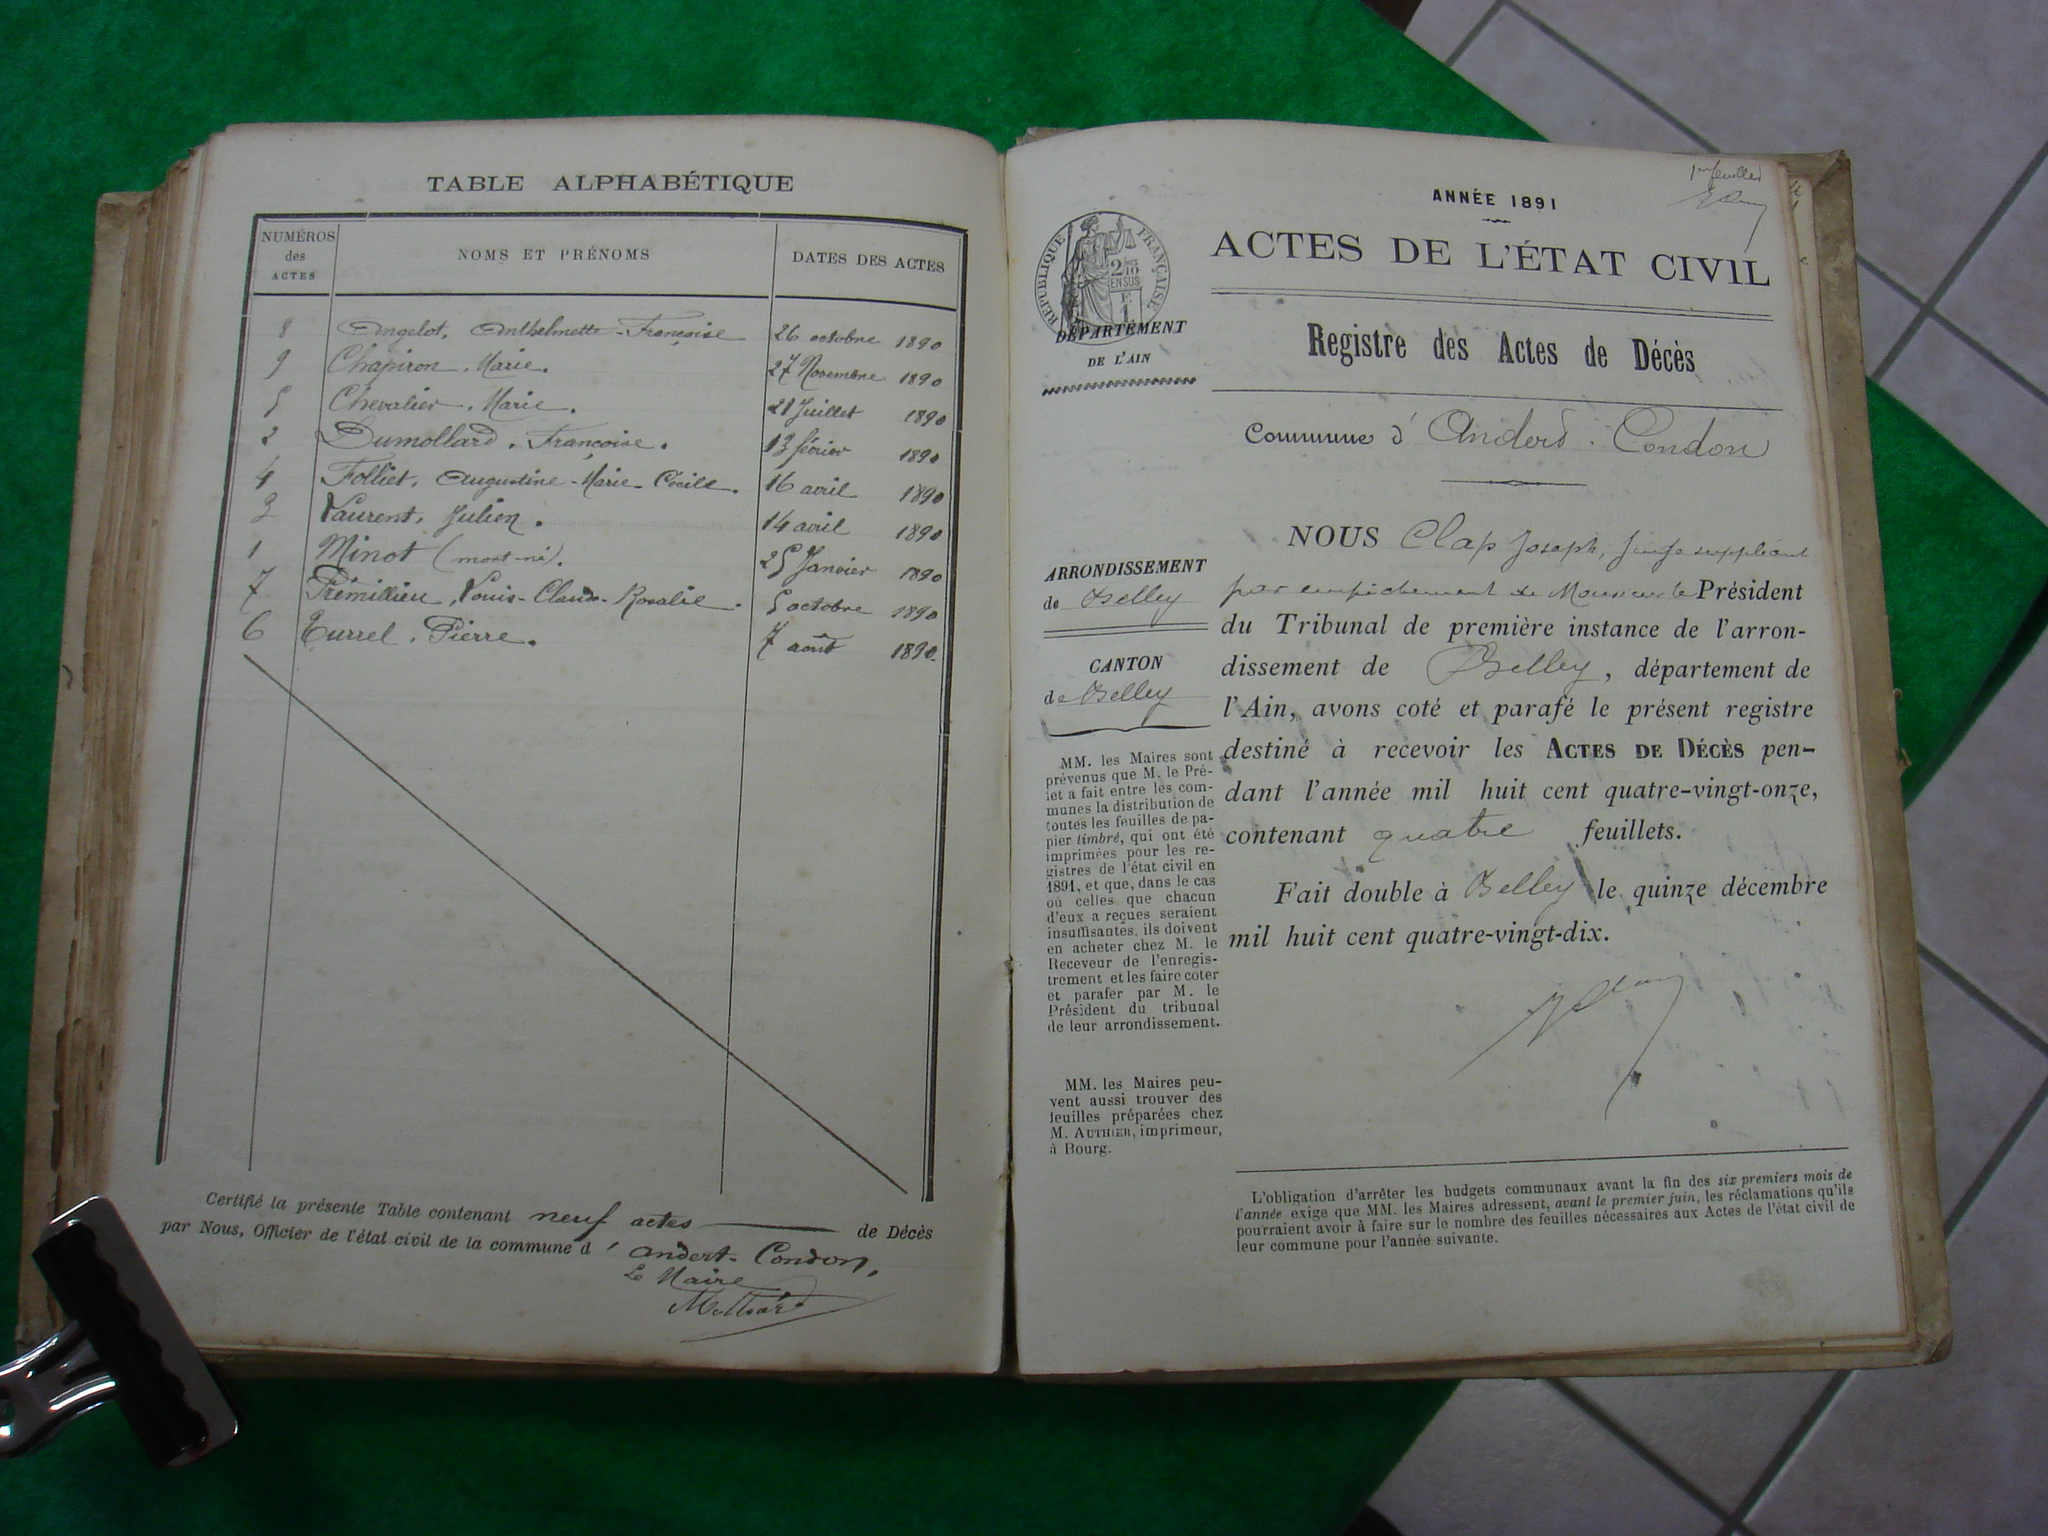 TABLE ALPHABÉTIQUE
NUMÉROS des ACTES NOMS ET PRÉNOMS DATES DES ACTES
8 Angelot, Anthelmette-Françoise 26 octobre 1890
9 Chapiron, Marie. 27 Novembre 1890
5 Chevalier, Marie. 28 Juillet 1890
2 Dumollard, Françoise. 13 février 1890
4 Folliet, Augustine-Marie-Cécile. 16 avril 1890
3 Laurent, Julien. 14 avril 1890
1 Minot (mort-né). 25 Janvier 1890
7 Prémillieu, Louis-Claude-Rosalie. 5 octobre 1890
6 Turrel, Pierre. 7 août 1890.
Certifié la présente Table contenant neuf actes de Décès
par Nous, Officier de l'état civil de la commune d' Andert-Condon,
Le Maire
1er feuillet
ANNÉE 1891
ACTES DE L'ÉTAT CIVIL
RÉPUBLIQUE FRANÇAISE
2/10 EN SUS
F. 1
DÉPARTEMENT
DE L'AIN
Registre des Actes de Décès
Commune d' Andert-Condon
ARRONDISSEMENT
de Belley
CANTON
de Belley
MM. les Maires sont
prévenus que M. le Pré-
fet a fait entre les com-
munes la distribution de
toutes les feuilles de pa-
pier timbré, qui ont été
imprimées pour les re-
gistres de l'état civil en
1891, et que, dans le cas
où celles que chacun
d'eux a reçues seraient
insuffisantes, ils doivent
en acheter chez M. le
Receveur de l'enregis-
trement et les faire coter
et parafer par M. le
Président du tribunal
de leur arrondissement.
MM. les Maires peu-
vent aussi trouver des
feuilles préparées chez
M. AUTHIER, imprimeur,
à Bourg.
NOUS Clap Joseph, Juge suppléant
par empêchement de Monsieur le Président
du Tribunal de première instance de l'arron-
dissement de Belley, département de
l'Ain, avons coté et parafé le présent registre
destiné à recevoir les ACTES DE DÉCÈS pen-
dant l'année mil huit cent quatre-vingt-onze,
contenant quatre feuillets.
Fait double à Belley le quinze décembre
mil huit cent quatre-vingt-dix.
L'obligation d'arrêter les budgets communaux avant la fin des six premiers mois de
l'année exige que MM. les Maires adressent, avant le premier juin, les réclamations qu'ils
pourraient avoir à faire sur le nombre des feuilles nécessaires aux Actes de l'état civil de
leur commune pour l'année suivante.